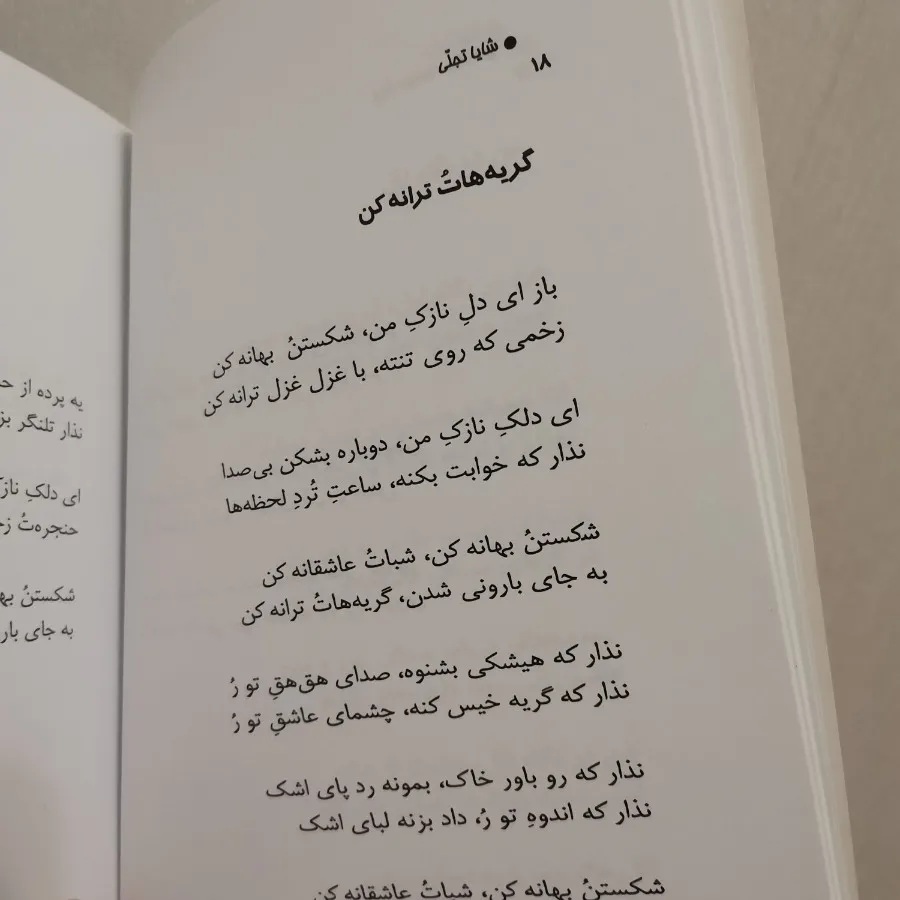 ● شایا تجلّی
۱۸
گریه‌هاتُ ترانه کن
باز ای دلِ نازکِ من، شکستنُ بهانه کن
زخمی که روی تنته، با غزل غزل ترانه کن
ای دلکِ نازکِ من، دوباره بشکن بی‌صدا
نذار که خوابت بکنه، ساعتِ تُردِ لحظه‌ها
شکستنُ بهانه کن، شباتُ عاشقانه کن
به جای بارونی شدن، گریه‌هاتُ ترانه کن
نذار که هیشکی بشنوه، صدای هق‌هقِ تو رُ
نذار که گریه خیس کنه، چشمای عاشقِ تو رُ
نذار که رو باور خاک، بمونه رد پای اشک
نذار که اندوهِ تو رُ، داد بزنه لبای اشک
شکستنُ بهانه کن، شباتُ عاشقانه کن
یه پرده از
نذار تلنگر
ای دلکِ
حنجره‌تُ
شکستنُ
به جای